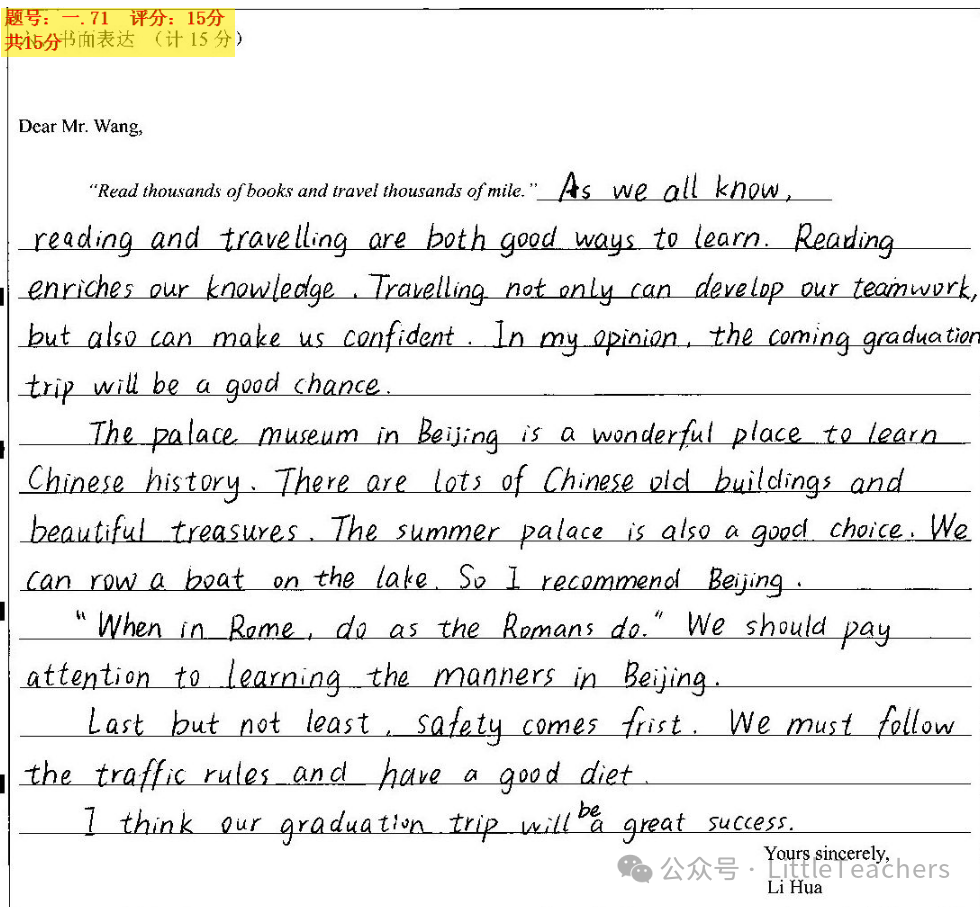 题号：一.71 评分：15分
共15分 书面表达 （计 15 分）
Dear Mr. Wang,
“Read thousands of books and travel thousands of mile.” As we all know,
reading and travelling are both good ways to learn. Reading
enriches our knowledge. Travelling not only can develop our teamwork,
but also can make us confident. In my opinion, the coming graduation
trip will be a good chance.
The palace museum in Beijing is a wonderful place to learn
Chinese history. There are lots of Chinese old buildings and
beautiful treasures. The summer palace is also a good choice. We
can row a boat on the lake. So I recommend Beijing.
“When in Rome, do as the Romans do.” We should pay
attention to learning the manners in Beijing.
Last but not least, safety comes frist. We must follow
the traffic rules and have a good diet.
I think our graduation trip will be a great success.
Yours sincerely,
公众号 · LittleTeachers
Li Hua